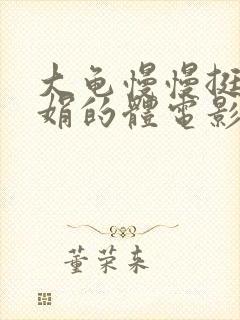 大龟慢慢挺
娟的體电影
董荣来